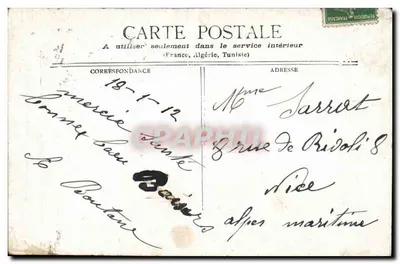 CARTE POSTALE
A utiliser seulement dans le service intérieur
(France, Algérie, Tunisie)
CORRESPONDANCE
ADRESSE
18-1-12
mercie
bonnes
Baisers
Mme Sarrat
8 rue de Rivoli 8
Nice
alpes maritime